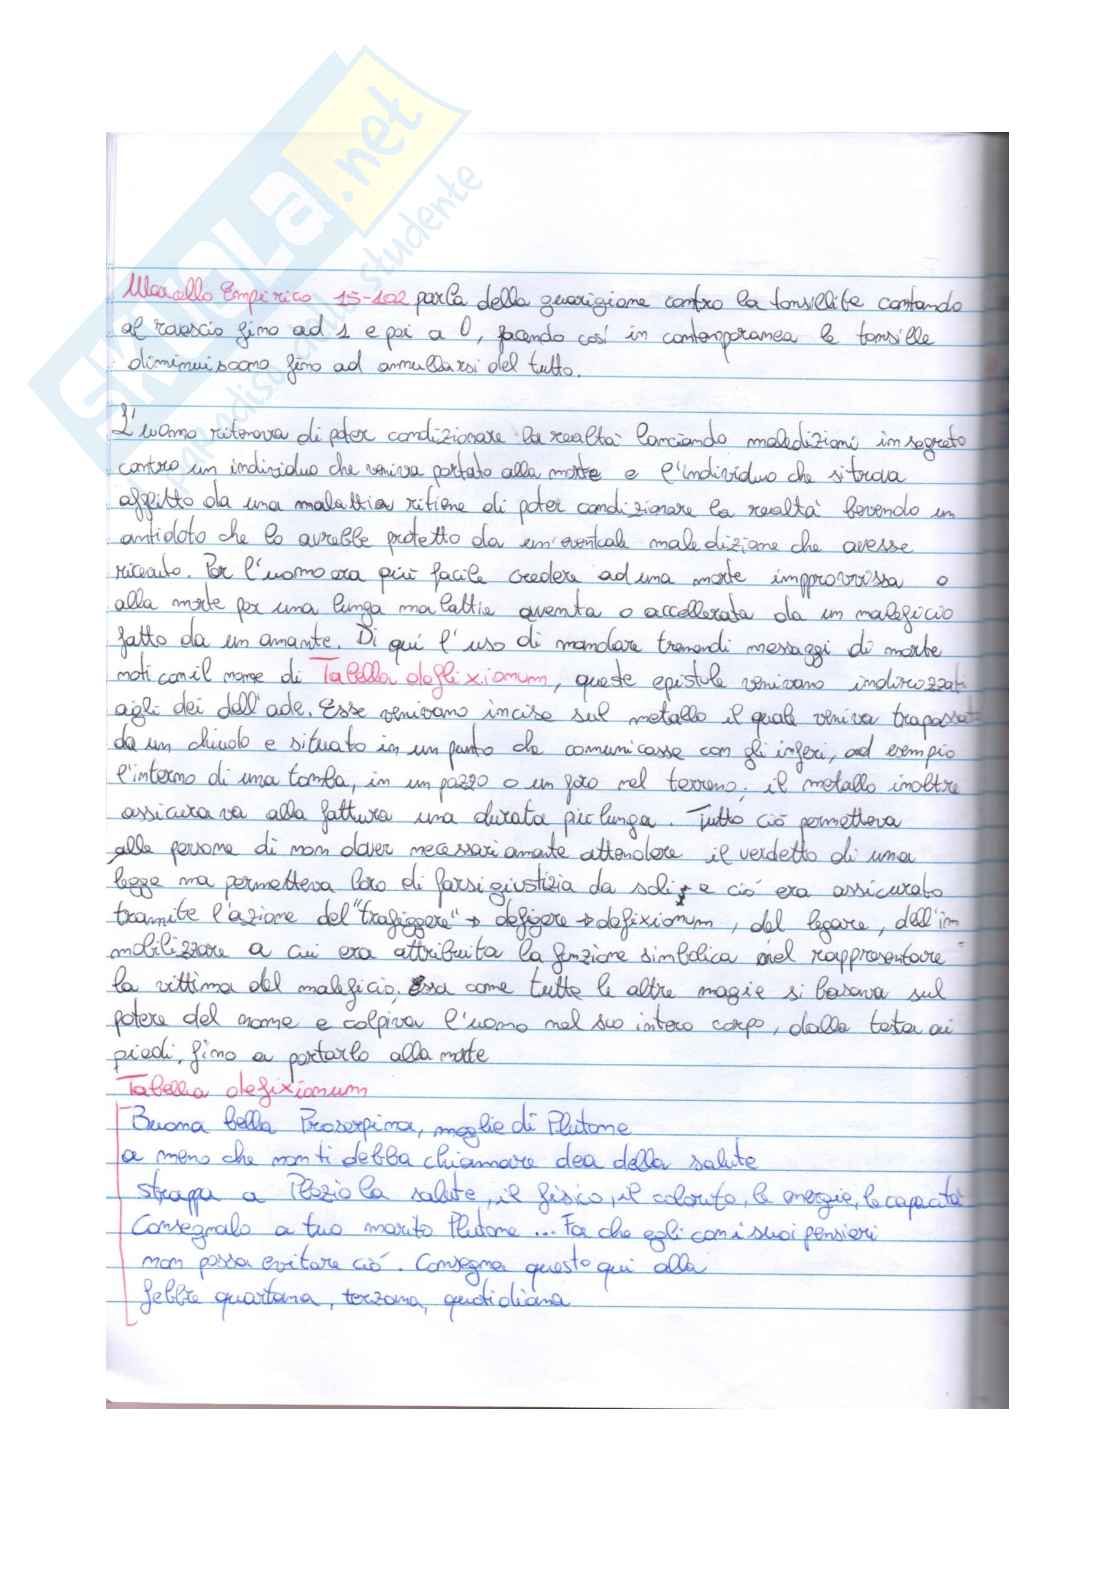 SKUOLA.net
il paradiso dello studente
Marcello Empirico 15-102 parla della guarigione contro la tonsillite contando
al rovescio fino ad 1 e poi a 0, facendo così in contemporanea le tonsille
diminuiscono fino ad annullarsi del tutto.
L'uomo riteneva di poter condizionare la realtà lanciando maledizioni in segreto
contro un individuo che veniva portato alla morte e l'individuo che si trova
afflitto da una malattia ritiene di poter condizionare la realtà bevendo un
antidoto che lo avrebbe protetto da un'eventuale maledizione che avesse
ricevuto. Per l'uomo era più facile credere ad una morte improvvissa o
alla morte per una lunga malattia aventa o accellerata da un maleficio
fatto da un amante. Di qui l'uso di mandare tremendi messaggi di morte
noti con il nome di Tabella deflixionum, queste epistule venivano indirizzat
aigli dei dell'ade. Esse venivano incise sul metallo il quale veniva trapassat
da un chiodo e situato in un punto che comunicasse con gli inferi, ad esempio
l'interno di una tomba, in un pozzo o un foro nel terreno; il metallo inoltre
assicurava alla fattura una durata più lunga. Tutto ciò permetteva
alle persone di non dover necessariamente attendere il verdetto di una
legge ma permetteva loro di farsi giustizia da soli e ciò era assicurato
tramite l'azione del "trafiggere" → defigere → defixionum, del legare, dell'im
mobilizzare a cui era attribuita la funzione simbolica nel rappresentare
la vittima del maleficio. Essa come tutte le altre magie si basava sul
potere del nome e colpiva l'uomo nel suo intero corpo, dalla testa ai
piedi, fino a portarlo alla morte
Tabella defixionum
Buona bella Proserpina, moglie di Plutone
a meno che non ti debba chiamare dea della salute
strappa a Plozio la salute, il fisico, il colorito, le energie, le capacità
Consegnalo a tuo marito Plutone ... Fa che egli con i suoi pensieri
non possa evitare ciò. Consegna questo qui alla
febbre quartana, terzana, quotidiana